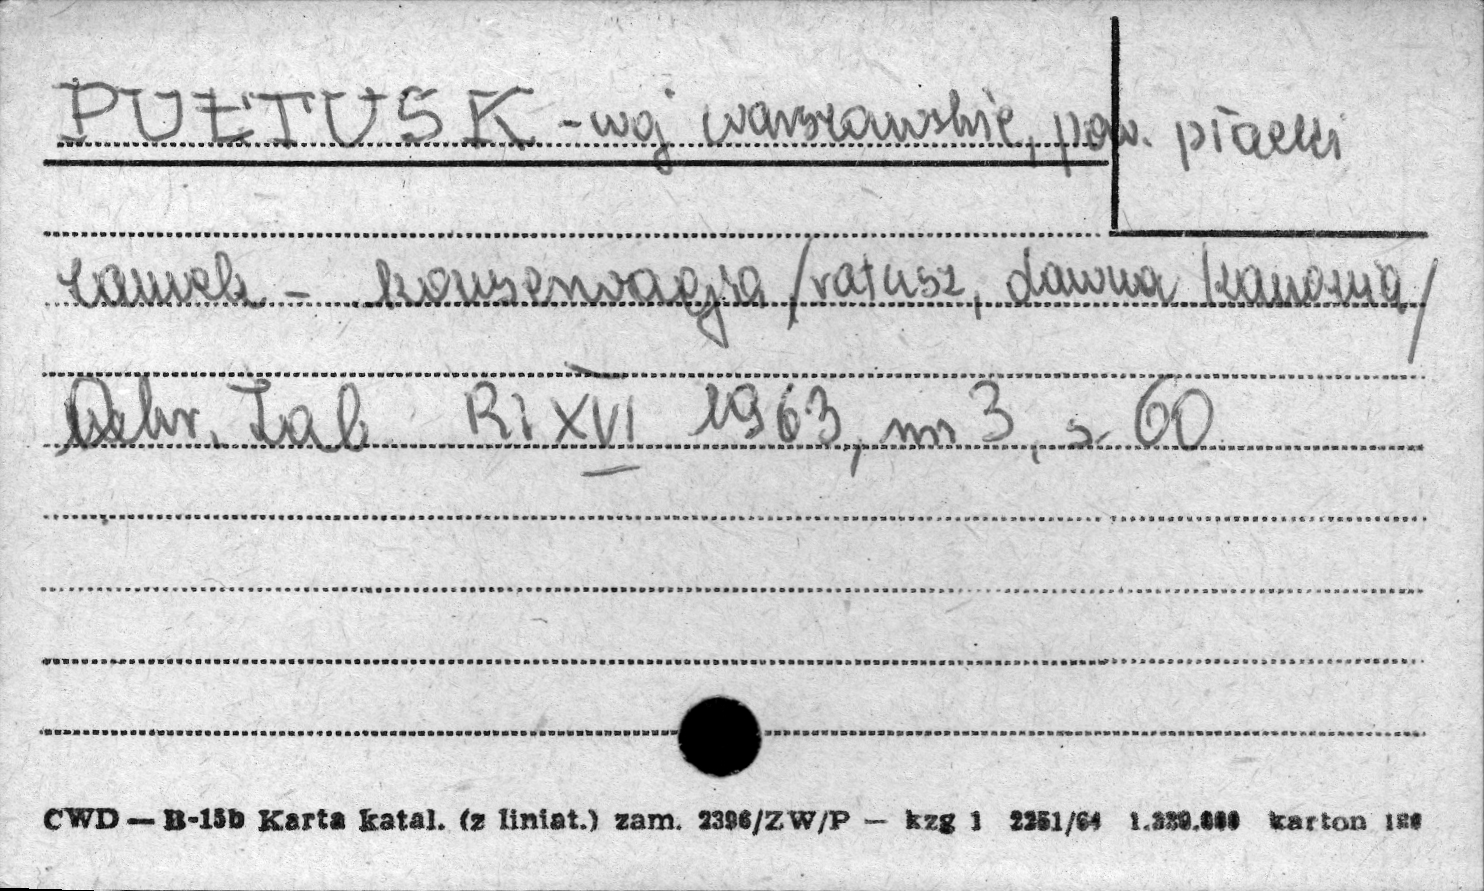 PUŁTUSK - woj warszawskie, pow. płacki
zamek - konserwacja /ratusz, dawna kanonia/
Ochr. Zab R. XVI 1963, nr 3, s. 60
CWD — B-15b Karta katal. (z liniat.) zam. 2396/ZW/P — kzg 1 2251/64 karton